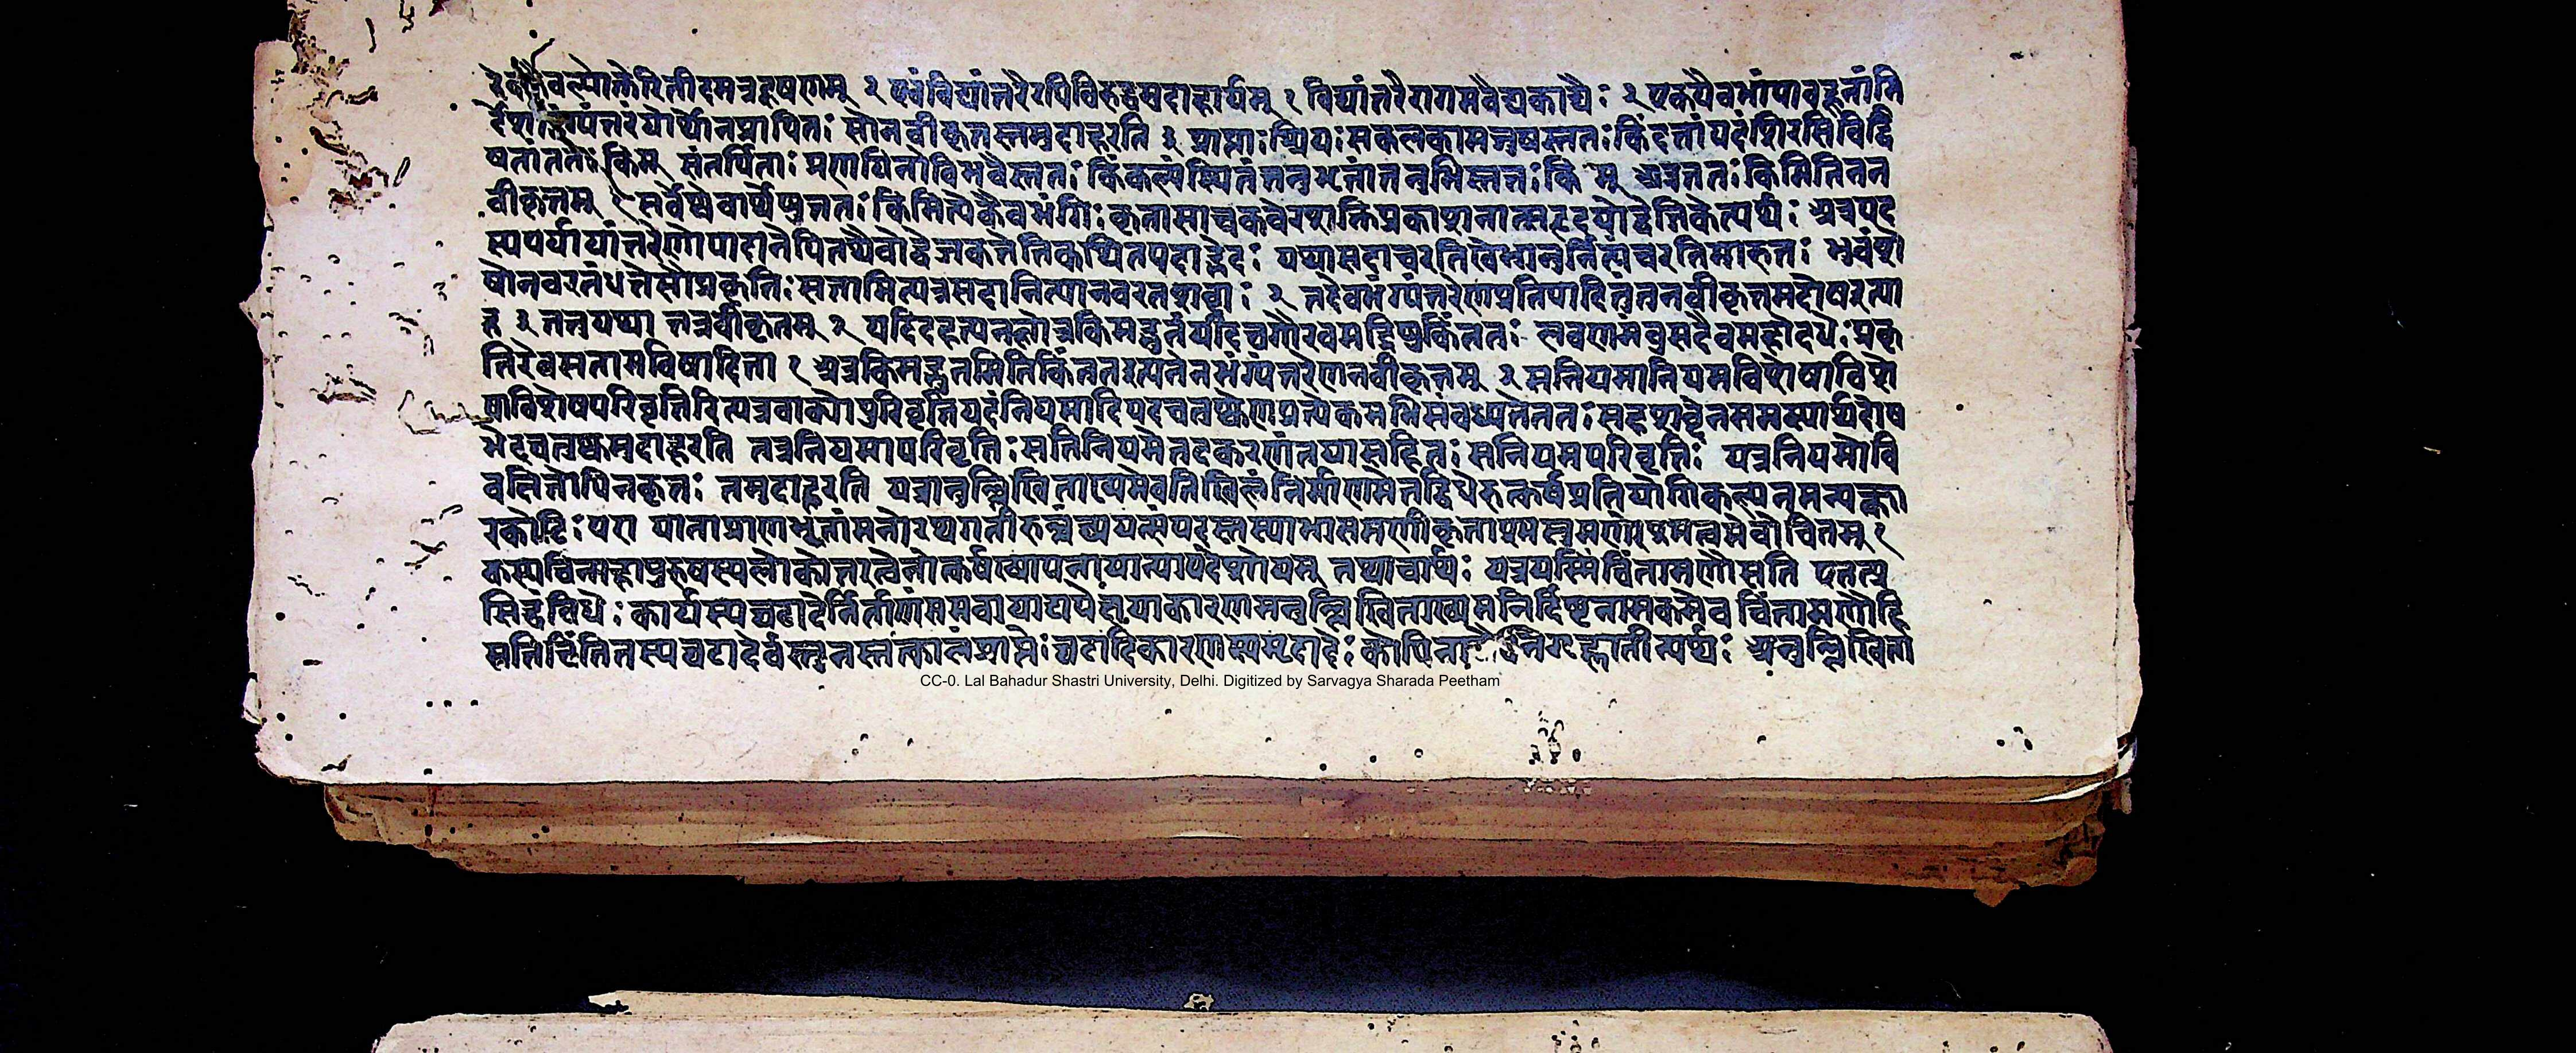 वल्पोक्तेरितीदमत्रदूषणम् २ एवंविद्यांतरैरपिविरुद्धमुदाहार्यम् १ विद्यांतरैरागमवैद्यकाद्यैः २ एकयैवभंग्याबहूनांनि
र्देशो भंग्यंतरंयोर्थोनप्रापितः सोनवीकृतस्तमुदाहरति ३ प्राप्ताः श्रियः सकलकामजुषस्ततः किंदत्तांपदंशिरसिविद्वि
षतांततः किम् संतर्पिताः प्रणयिनोविभवैस्ततः किंकल्पंस्थितंतनुभृतांतनुभिस्ततः किम् अत्रततः किमितिनन
वीकृतम् १ सर्वेष्वेवार्थेषुततः किमित्येकैवभंगिः कृतासाचकवेरशक्तिप्रकाशनात्सहृदयोद्वेजिकेत्यर्थः अत्रपद
स्यपर्यायांतरेणोपादानेपितथैवोद्वेजकतेतिकथितपदाद्भेदः यथासदाचरतिखेभानुर्नित्यंचरतिमारुतः भुवंशे
षोनवरतंधत्तेसाप्रकृतिः सतामित्यत्रसदानित्यानवरतशब्दाः २ तदेवंभंग्यंतरेणप्रतिपादितंतुतनवीकृतमदोषइत्या
ह ३ तत्तुयथा तत्रवीकृतम् २ यदिदहत्यनलोत्रकिमद्भुतंयदिचगौरवमद्रिषुकिंततः लवणमंबुसदैवमहोदधेः प्रकृ
तिरेवसतामविषादिता १ अत्रकिमद्भुतमितिकिंततइत्यनेनभंग्यंतरेणनवीकृतम् ३ सनियमानियमविशेषाविशे
षाविशेषपरिवृत्तिरित्यत्रवाक्येपरिवृत्तिपदंनियमादिपदचतुष्केणप्रत्येकमभिसंबध्यतेनतः सहशब्देनसमस्यार्थदोष
भेदचतुष्कमुदाहरति तत्रनियमापरिवृत्तिः सतिनियमेतदकरणंतयासहितः सनियमपरिवृत्तिः यत्रनियमोवि
वक्षितोपिनकृतः तमुदाहरति यत्रानुल्लिखिताख्यमेवनिखिलंनिर्माणमेतद्विधेरुत्कर्षप्रतियोगिकल्पनमन्यक्का
रकोटिः परा याताप्राणभृतांमनोरथगतीरुल्लंघ्ययत्संपदस्तस्याभासमणीकृताश्मसुमणेरश्मत्वमेवोचितम् १
कस्यचिन्महापुरुषस्यलोकोत्तरत्वेनोत्कर्षख्यापनायान्यापदेशोयम् तथाचार्थः यत्रयस्मिंचिंतामणौसति एतत्प्र
सिद्धंविधेः कार्यस्यघटादेर्निर्माणंसमवायाद्यपेक्षयाकारणमनुल्लिखिताख्यमनिर्दिष्टनामकमेव चिंतामणौहि
सतिचिंतितस्यघटादेर्वस्तुनस्तत्कालंप्राप्तेः घटादिकारणस्यमृदादेः कोपिना गृह्णातीत्यर्थः अनुल्लिखिता
CC-0. Lal Bahadur Shastri University, Delhi. Digitized by Sarvagya Sharada Peetham